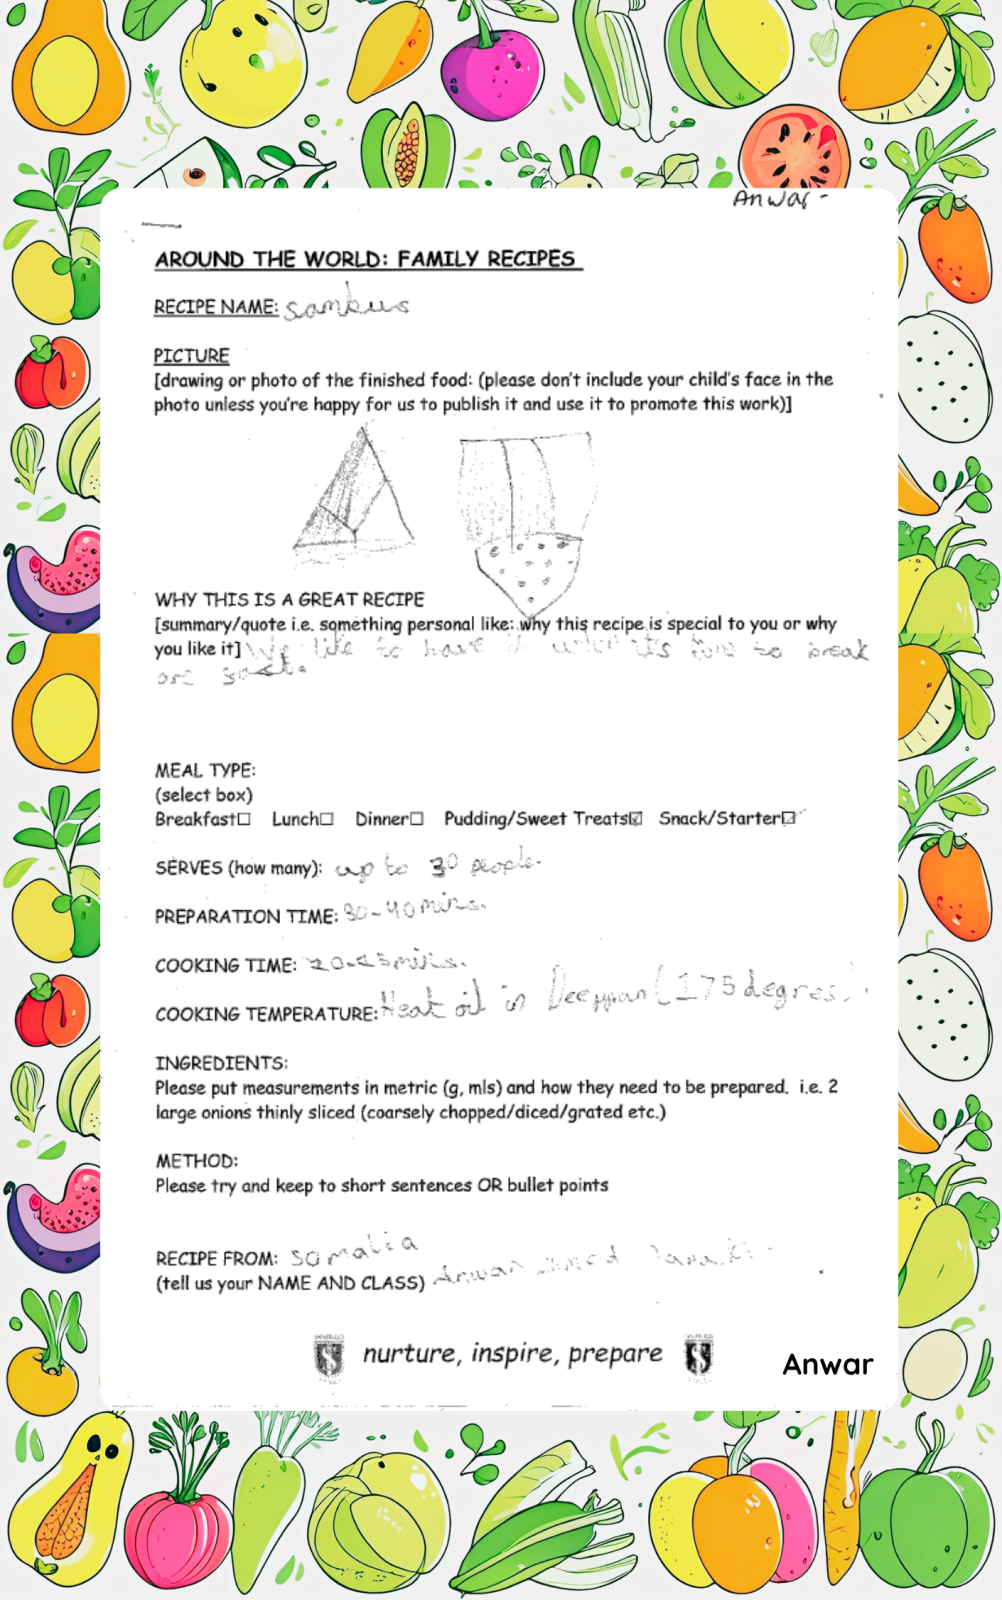 Anwar-
AROUND THE WORLD: FAMILY RECIPES
RECIPE NAME: sambus
PICTURE
[drawing or photo of the finished food: (please don't include your child's face in the
photo unless you're happy for us to publish it and use it to promote this work)]
WHY THIS IS A GREAT RECIPE
[summary/quote i.e. something personal like: why this recipe is special to you or why
you like it] We like to have it when it's time to break
MEAL TYPE:
(select box)
Breakfast☐ Lunch☐ Dinner☐ Pudding/Sweet Treats☑ Snack/Starter☑
SERVES (how many): up to 30 people.
PREPARATION TIME: 30-40 mins.
COOKING TIME:
COOKING TEMPERATURE: Heat oil in Deeppan (175 degres)
INGREDIENTS:
Please put measurements in metric (g, mls) and how they need to be prepared. i.e. 2
large onions thinly sliced (coarsely chopped/diced/grated etc.)
METHOD:
Please try and keep to short sentences OR bullet points
RECIPE FROM: Somalia
(tell us your NAME AND CLASS) Anwar
nurture, inspire, prepare
Anwar